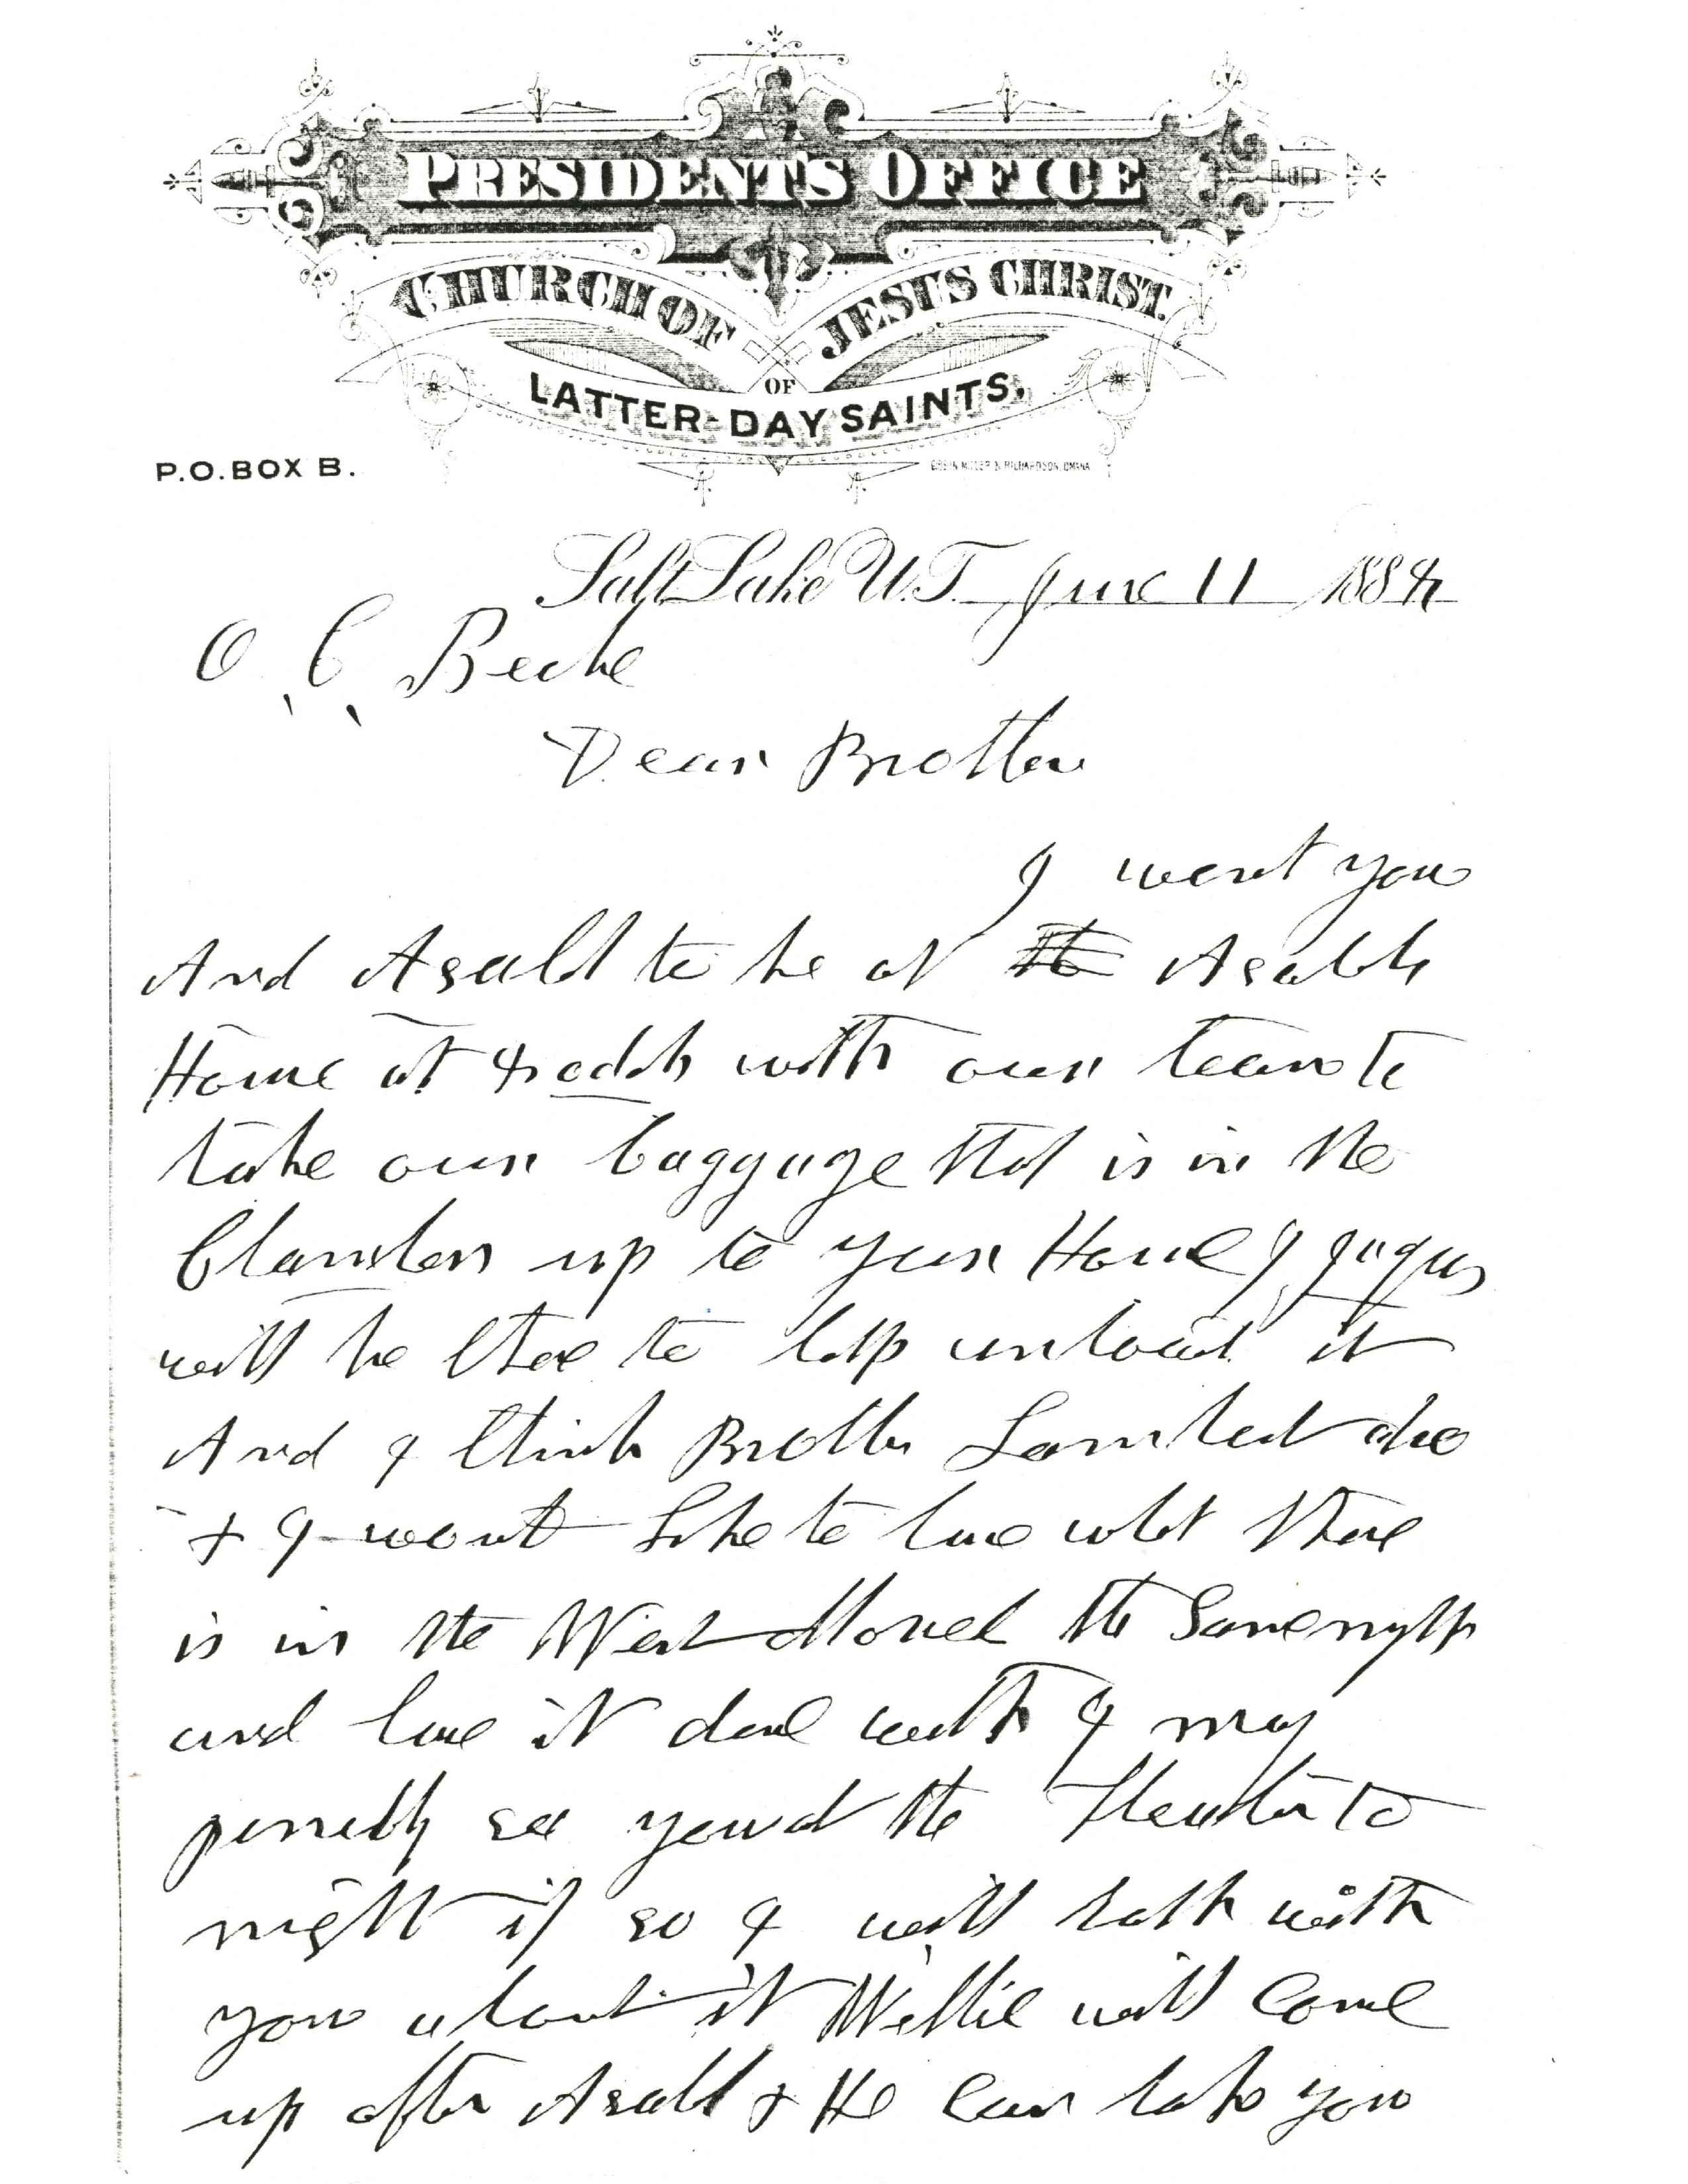 PRESIDENT'S OFFICE
CHURCH OF JESUS CHRIST.
OF
LATTER-DAY SAINTS.
P.O. BOX B.
Salt Lake U.T. June 11 1884
O. C. Beebe
Dear Brother
I want you
And Asahel to be at the Asahels
Home at 4 oclock with our team to
take our baggage that is in the
Chamber up to your Home
will be there to help unload it
And I think Brother Lambert also
& I want like to have what there
is in the West Moved the Same night
and have it done with I may
see you at the Theater to
night if so I will talk with
you about it Willie will Come
up after Asahel & He Can take you